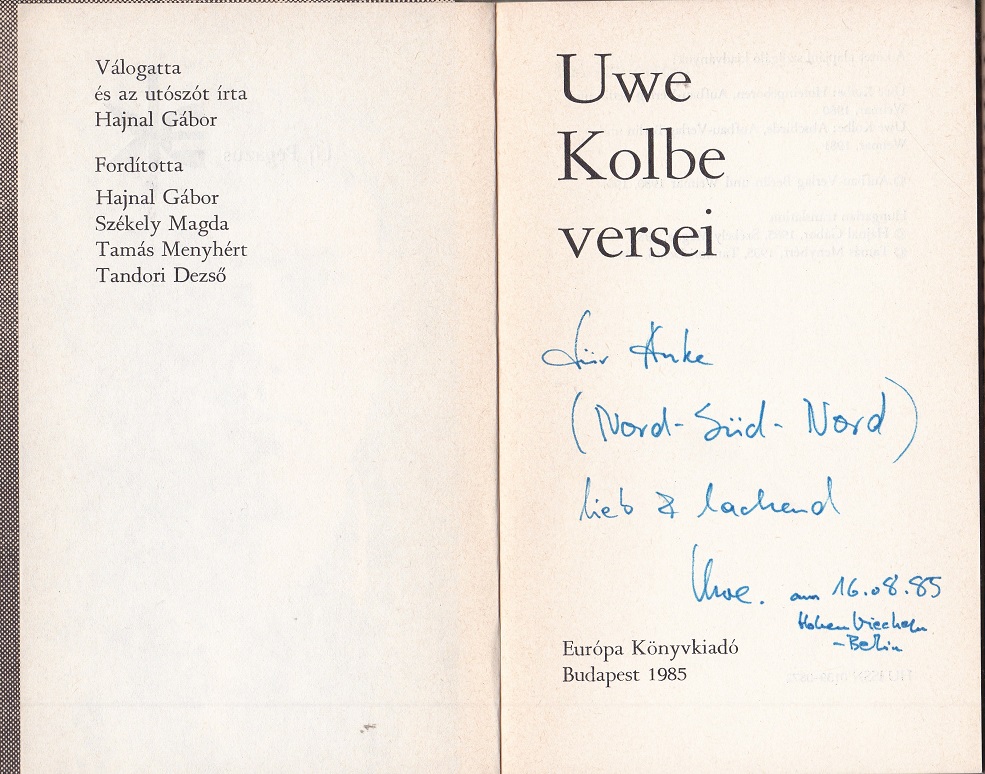 Válogatta
és az utószót írta
Hajnal Gábor
Fordította
Hajnal Gábor
Székely Magda
Tamás Menyhért
Tandori Dezső
Uwe
Kolbe
versei
für Anke
(Nord-Süd-Nord)
lieb & lachend
Uwe. am 16.08.85
Hohen Viecheln
-Berlin
Európa Könyvkiadó
Budapest 1985